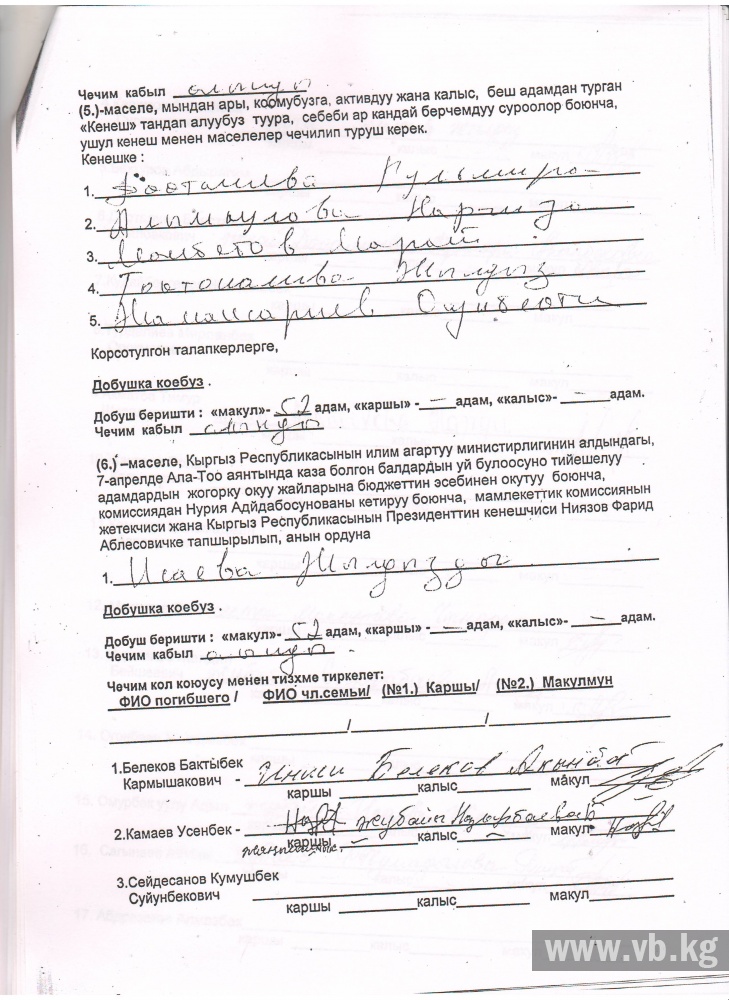 Чечим кабыл алынды
(5.)-маселе, мындан ары, коомубузга, активдуу жана калыс, беш адамдан турган
«Кенеш» тандап алуубуз туура, себеби ар кандай берчемдуу суроолор боюнча,
ушул кенеш менен маселелер чечилип туруш керек.
Кенешке :
1. Гульмира
2. Наргиза
3. Мамбетов Марат
4. Жылдыз
5.
Корсотулгон талапкерлерге,
Добушка коебуз .
Добуш беришти : «макул»- 52 адам, «каршы» - — адам, «калыс»- — адам.
Чечим кабыл алынды
(6.) –маселе, Кыргыз Республикасынын илим агартуу министирлигинин алдындагы,
7-апрелде Ала-Тоо аянтында каза болгон балдардын уй булоосуно тийешелуу
адамдардын жогорку окуу жайларына бюджеттин эсебинен окутуу боюнча,
комиссиядан Нурия Адйдабосунованы кетируу боюнча, мамлекеттик комиссиянын
жетекчиси жана Кыргыз Республикасынын Президенттин кенешчиси Ниязов Фарид
Аблесовичке тапшырылып, анын ордуна
1. Исаева Жылдызды
Добушка коебуз .
Добуш беришти : «макул»- 52 адам, «каршы» - — адам, «калыс»- — адам.
Чечим кабыл алынды .
Чечим кол коюусу менен тизхме тиркелет:
ФИО погибшего / ФИО чл.семьи/ (№1.) Каршы/ (№2.) Макулмун
/ /
1.Белеков Бактыбек
Кармышакович - Иниси Белеков
каршы калыс макул
2.Камаев Усенбек - жубайы
каршы — калыс — макул
3.Сейдесанов Кумушбек
Суйунбекович
каршы калыс макул
www.vb.kg